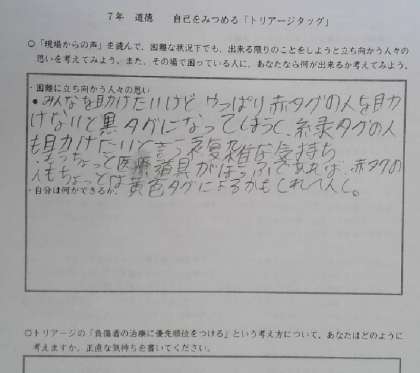 7年　道徳　　自己をみつめる「トリアージタッグ」
○「現場からの声」を読んで、困難な状況下でも、出来る限りのことをしようと立ち向かう人々の
思いを考えてみよう。また、その場で困っている人に、あなたなら何が出来るか考えてみよう。
・困難に立ち向かう人々の思い
●みんなを助けたいけど やっぱり 赤タグの人を助
けないと黒タグになってしまうし、緑タグの人
も助けたいと言う複雑な気持ち
・もうちょっと医療道具がほうふであれば、赤タグの
人もちょっとは黄色タグになるかもしれへんし。
・自分は何ができるか、
○トリアージの「負傷者の治療に優先順位をつける」という考え方について、あなたはどのように
考えますか。正直な気持ちを書いてください。